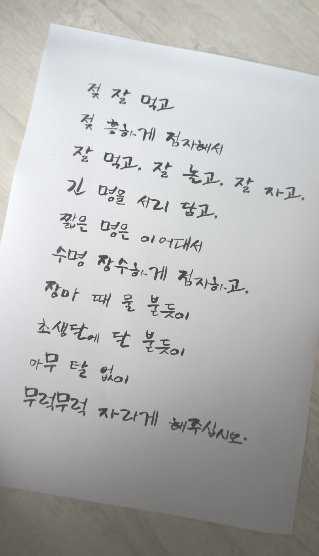 젖 잘 먹고
젖 흥하게 점지해서
잘 먹고, 잘 놀고, 잘 자고,
긴 명을 서리 담고,
짧은 명은 이어대서
수명 장수하게 점지하고,
장마 때 물 붇듯이
초생달에 달 붇듯이
아무 탈 없이
무럭무럭 자라게 해주십시오.